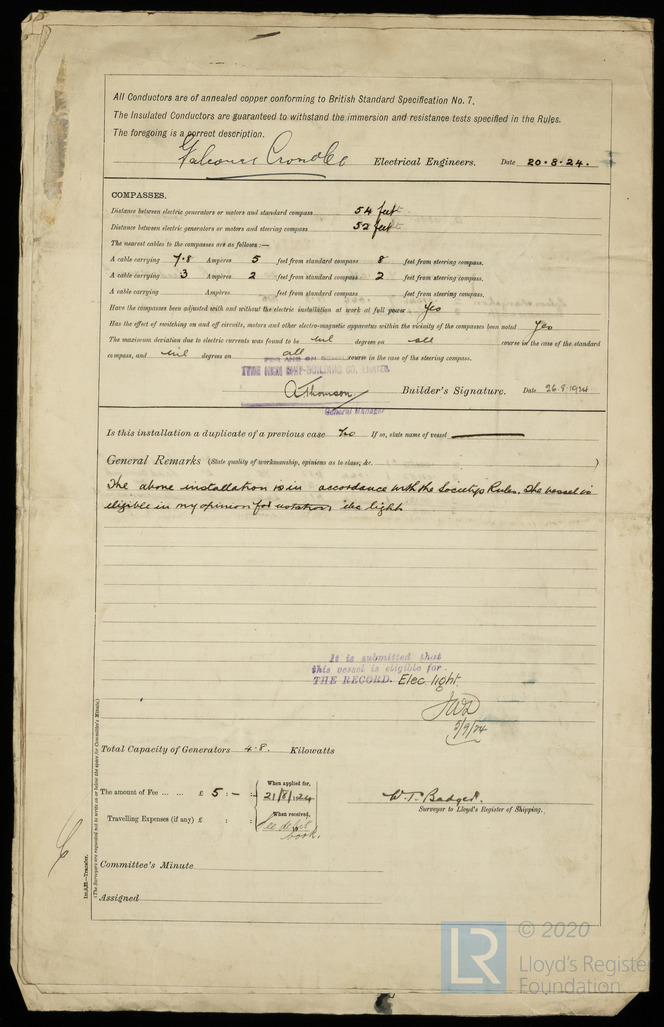 All Conductors are of annealed copper conforming to British Standard Specification No. 7.
The Insulated Conductors are guaranteed to withstand the immersion and resistance tests specified in the Rules.
The foregoing is a correct description.
Falconar Cross & Co Electrical Engineers. Date 20.8.24.
COMPASSES.
Distance between electric generators or motors and standard compass 54 feet
Distance between electric generators or motors and steering compass 52 feet
The nearest cables to the compasses are as follows:—
A cable carrying 7.8 Ampères 5 feet from standard compass 8 feet from steering compass.
A cable carrying 3 Ampères 2 feet from standard compass 2 feet from steering compass.
A cable carrying Ampères feet from standard compass feet from steering compass.
Have the compasses been adjusted with and without the electric installation at work at full power Yes
Has the effect of switching on and off circuits, motors and other electro-magnetic apparatus within the vicinity of the compasses been noted Yes
The maximum deviation due to electric currents was found to be nil degrees on all course in the case of the standard
compass, and nil degrees on all course in the case of the steering compass.
FOR AND ON BEHALF
TYNE IRON SHIP-BUILDING CO. LIMITED.
A Thomson Builder's Signature. Date 26.8.1924
General Manager
Is this installation a duplicate of a previous case No If so, state name of vessel
General Remarks (State quality of workmanship, opinions as to class, &c. )
The above installation is in accordance with the Society's Rules. The vessel is
eligible in my opinion for notation elec light
It is submitted that
this vessel is eligible for
THE RECORD. Elec light.
5/9/24
Total Capacity of Generators 4.8. Kilowatts
The amount of Fee ... ... £ 5 : — :
When applied for,
21/8/1924
W. T. Badger.
Surveyor to Lloyd's Register of Shipping.
Travelling Expenses (if any) £ : :
When received,
book.
Committee's Minute
Assigned
(The Surveyors are requested not to write on or below the space for Committee's Minute.)
Transfer.
LR
© 2020
Lloyd's Register
Foundation